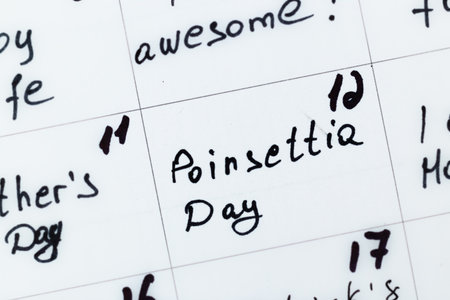 awesome!
fe
11
12
Poinsettia
Day
ther's
Day
17
16